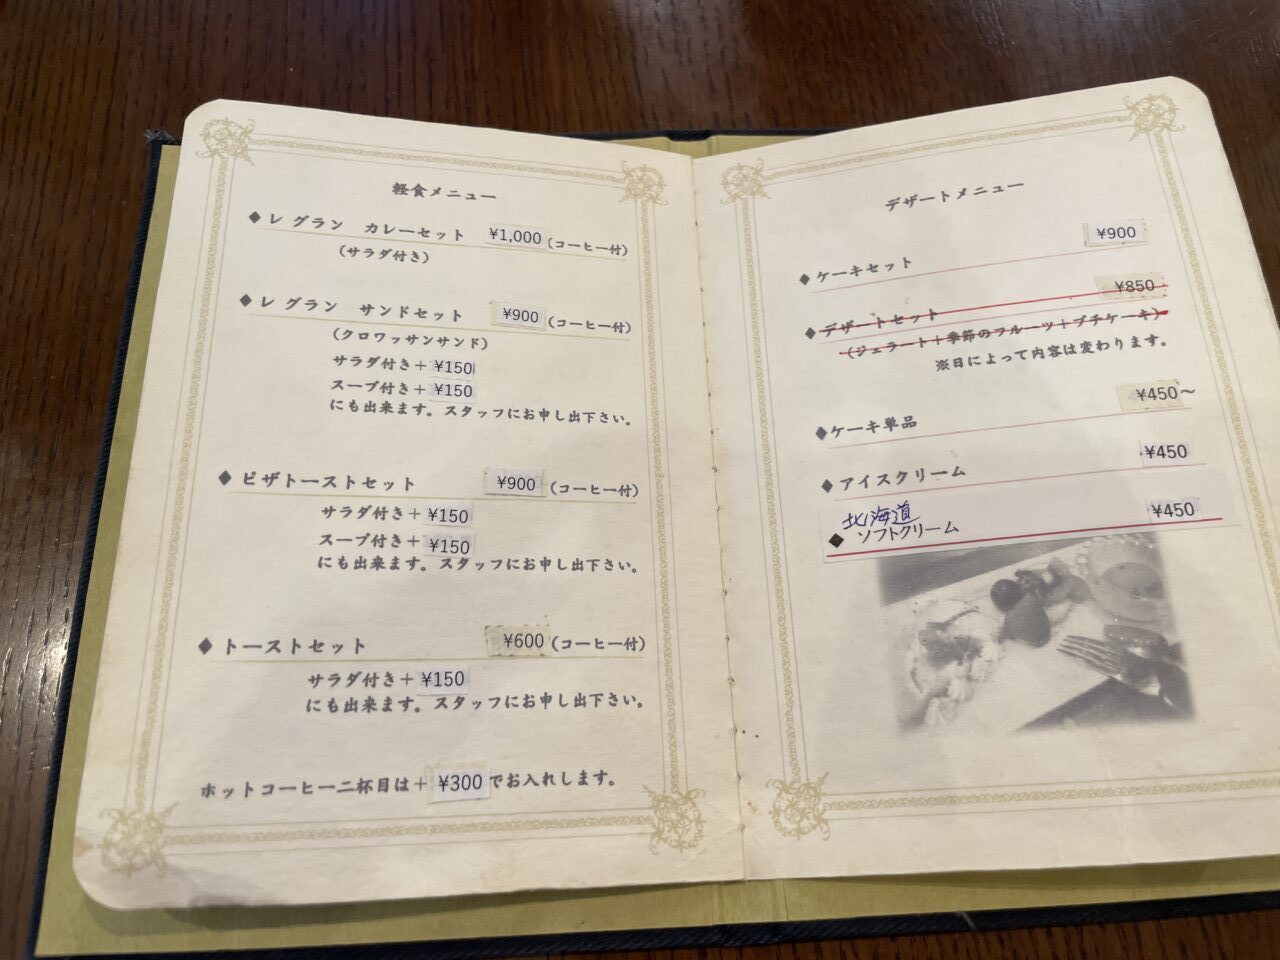 軽食メニュー
◆レ グラン カレーセット ¥1,000(コーヒー付)
(サラダ付き)
◆レ グラン サンドセット ¥900(コーヒー付)
(クロワッサンサンド)
サラダ付き＋¥150
スープ付き＋¥150
にも出来ます。スタッフにお申し出下さい。
◆ピザトーストセット ¥900(コーヒー付)
サラダ付き＋¥150
スープ付き＋¥150
にも出来ます。スタッフにお申し出下さい。
◆トーストセット ¥600(コーヒー付)
サラダ付き＋¥150
にも出来ます。スタッフにお申し出下さい。
ホットコーヒー二杯目は＋¥300でお入れします。
デザートメニュー
◆ケーキセット ¥900
◆デザートセット ¥850
(ジェラート＋季節のフルーツ＋プチケーキ)
※日によって内容は変わります。
◆ケーキ単品 ¥450～
◆アイスクリーム ¥450
北海道
◆ソフトクリーム ¥450